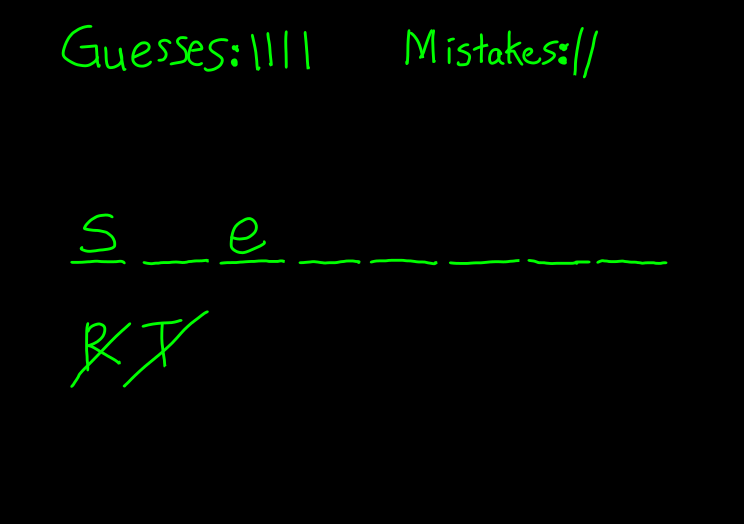 Guesses: |||| Mistakes: //
S _ e _ _ _ _ _
R T